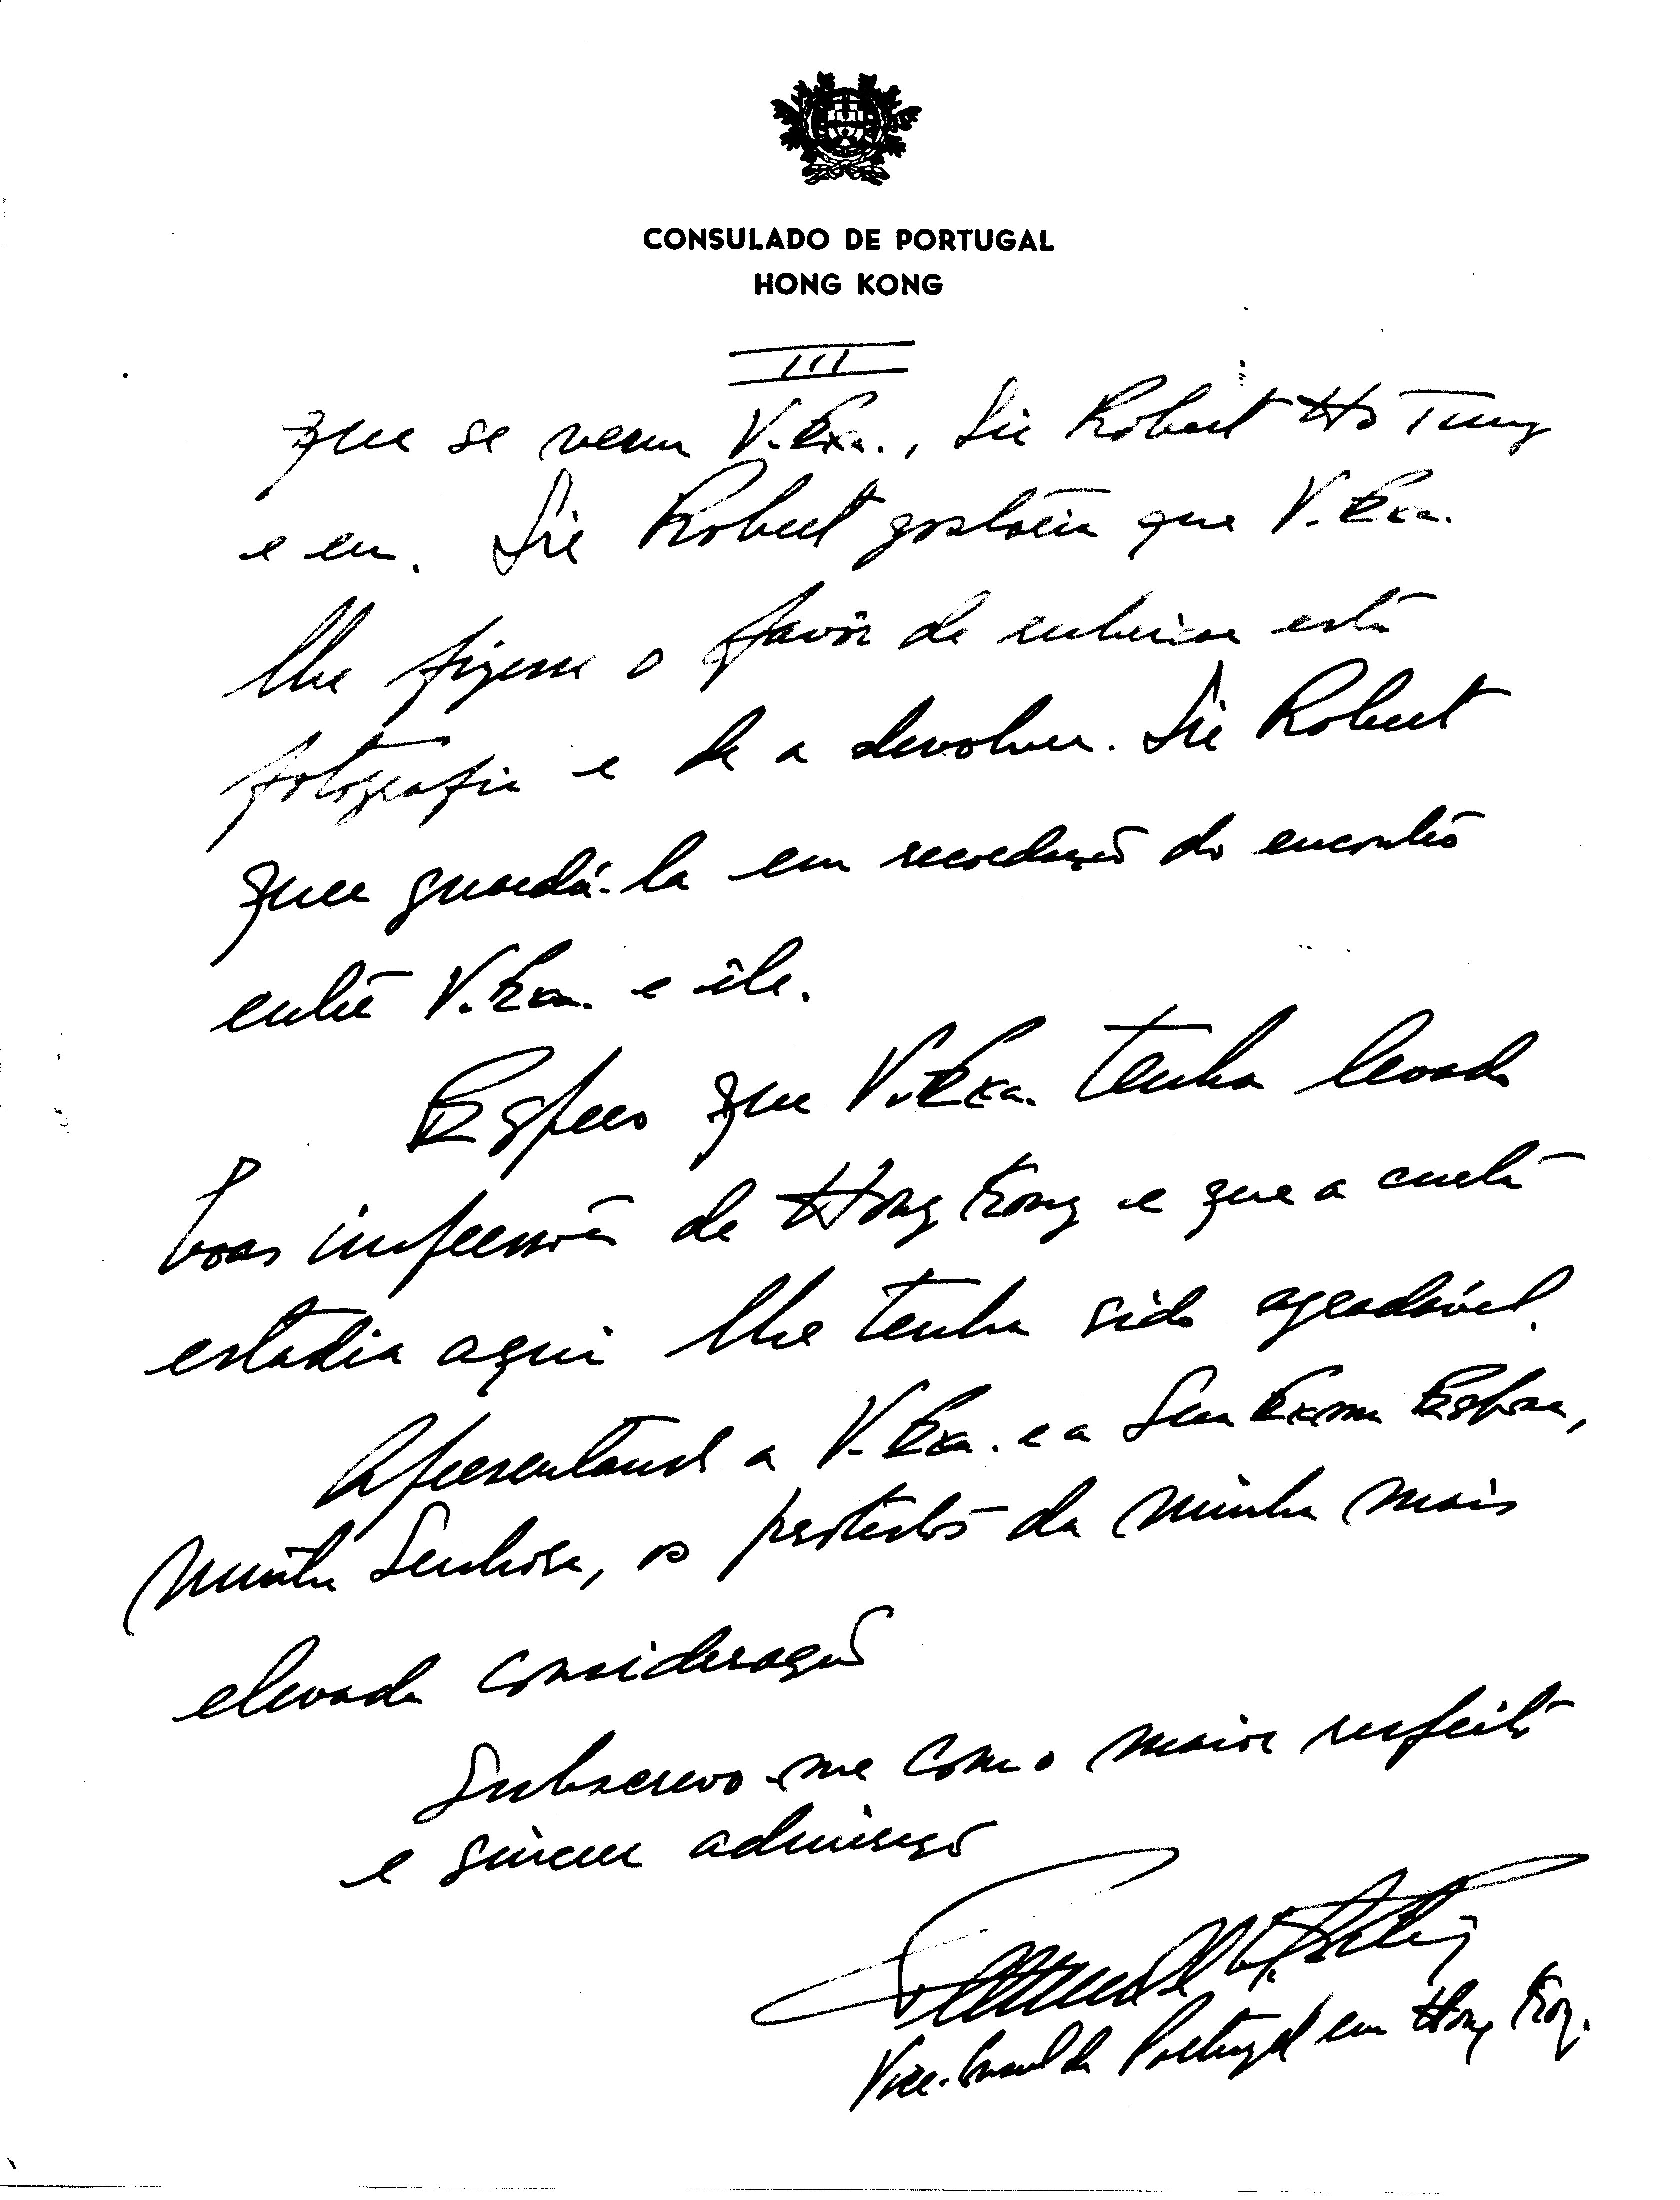 CONSULADO DE PORTUGAL
HONG KONG
III
que se vêem V. Exa., Sir Robert Ho Tung
e eu. Sir Robert gostaria que V. Exa.
lhe fizesse o favôr de rubricar esta
fotografia e de a devolver. Sir Robert
quer guardá-la em recordação do encontro
entre V. Exa. e êle.
Espero que V. Exa. tenha levado
boas impressões de Hong Kong e que a curta
estadia aqui lhe tenha sido agradável.
Apresentando a V. Exa. e a Sua Exma Esposa,
Minha Senhora, os protestos da minha mais
elevada consideração
Subscrevo-me com o maior respeito
e sincera admiração
Vice-Consul de Portugal em Hong Kong.